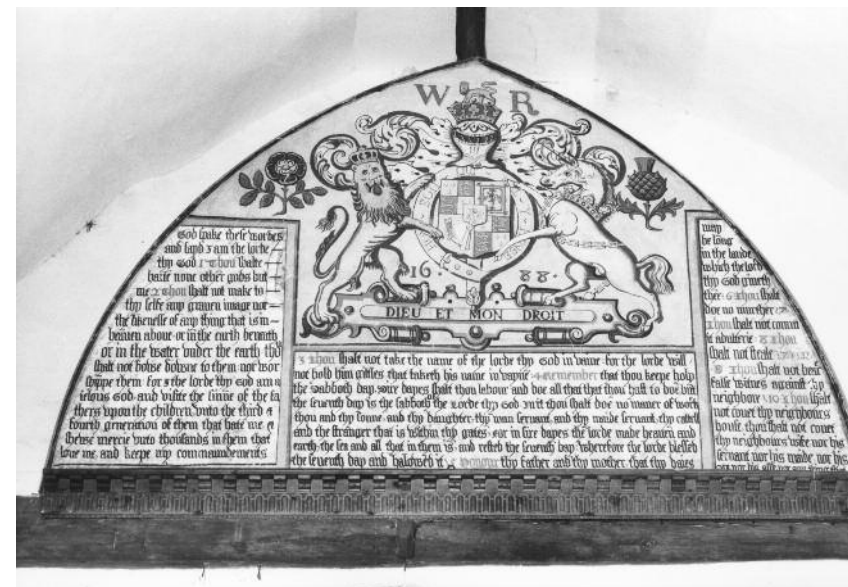 W R
16 88
DIEU ET MON DROIT
God spake these wordes
and sayd I am the lorde
thy God 1 Thou shalte
haue none other gods but
me 2 Thou shalt not make to
thy selfe any grauen image nor
the likenesse of any thing that is in
heauen aboue or in the earth beneath
or in the water vnder the earth thou
shalt not bowe downe to them nor wor
shippe them for I the lorde thy God am a
ielous God and visite the sinne of the fa
thers vpon the children vnto the third &
fourth generation of them that hate me &
shewe mercie vnto thousands in them that
loue me and keepe my commaundements
3 Thou shalt not take the name of the lorde thy God in vaine for the lorde will
not hold him giltles that taketh his name in vayne 4 Remember that thou keepe holy
the sabboth day sixe dayes shalt thou labour and doe all that thou hast to doe but
the seuenth day is the sabboth of the Lorde thy God in it thou shalt doe no maner of work
thou and thy sonne and thy daughter thy man seruant and thy maide seruant thy cattell
and the stranger that is within thy gates for in sixe dayes the lorde made heauen and
earth the sea and all that in them is and rested the seuenth day wherefore the lorde blessed
the seuenth day and halowed it 5 Honour thy father and thy mother that thy daies
may
be long
in the lande
which the lord
thy God giueth
thee 6 Thou shalt
doe no murther 7
Thou shalt not commit
adulterie 8 Thou
shalt not steale
9 Thou shalt not bear
false witnes against thy
neighbour 10 Thou shalt
not couet thy neighbours
house thou shalt not couet
thy neighbours wife nor his
seruant nor his maide nor his